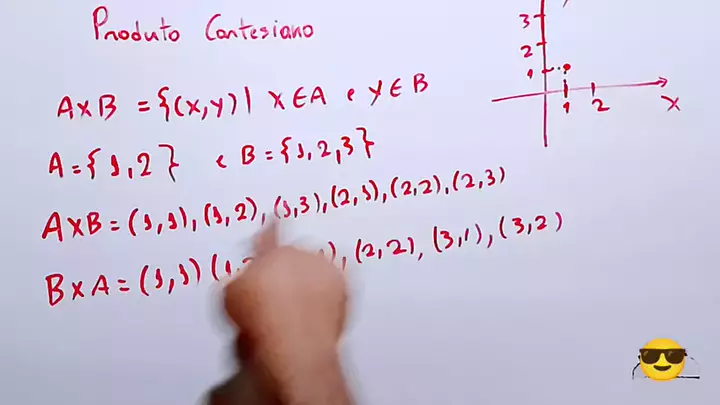 Produto Cartesiano
AxB = {(x,y)| x∈A e y∈B
A = {1,2} e B = {1,2,3}
AxB = (1,1), (1,2), (1,3), (2,1), (2,2), (2,3)
BxA = (1,1) (1,2), (2,2), (3,1), (3,2)
3
2
1
1 2
x